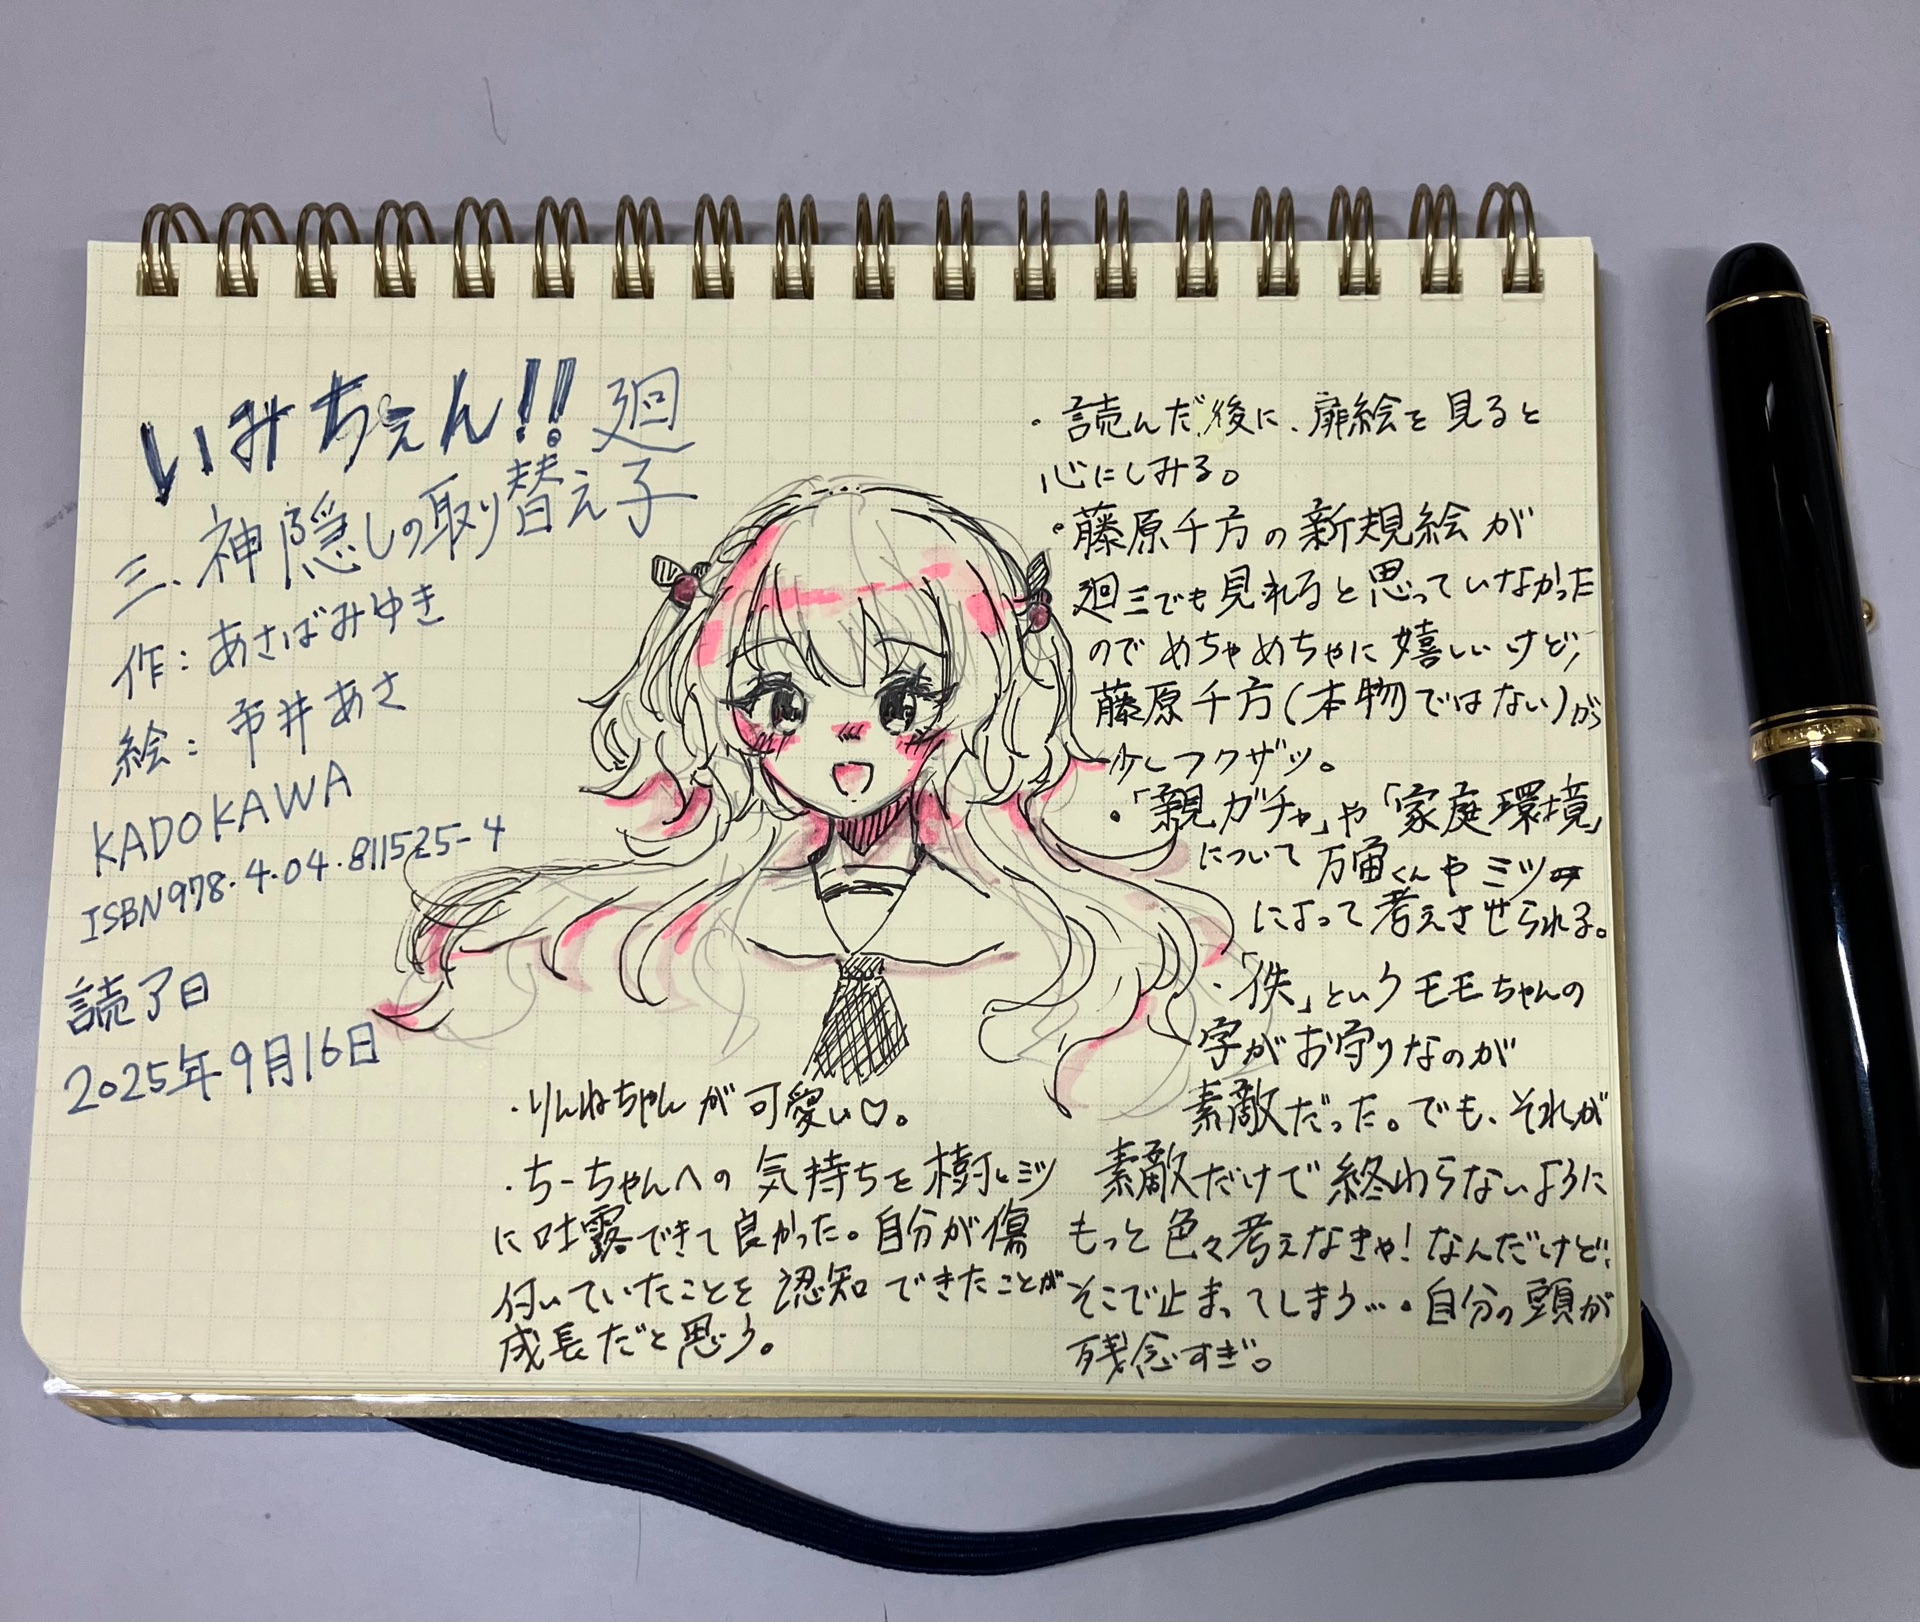 いみちぇん!!廻
三.神隠しの取り替え子
作:あさばみゆき
絵:市井あさ
KADOKAWA
ISBN978.4.04.811525-4
読了日
2025年9月16日
・りんねちゃんが可愛い♡。
・ちーちゃんへの気持ちを樹とミツ
に吐露できて良かった。自分が傷
付いていたことを認知できたことが
成長だと思う。
・読んだ後に、扉絵を見ると
心にしみる。
・藤原千方の新規絵が
廻三でも見れると思っていなかった
のでめちゃめちゃに嬉しいけど、
藤原千方(本物ではない)が
少しフクザツ。
・「親ガチャ」や「家庭環境」
について万宙くんやミツ
によって考えさせられる。
・「佚」というモモちゃんの
字がお守りなのが
素敵だった。でも、それが
素敵だけで終わらないように
もっと色々考えなきゃ!なんだけど、
そこで止まってしまう…。自分の頭が
残念すぎ。